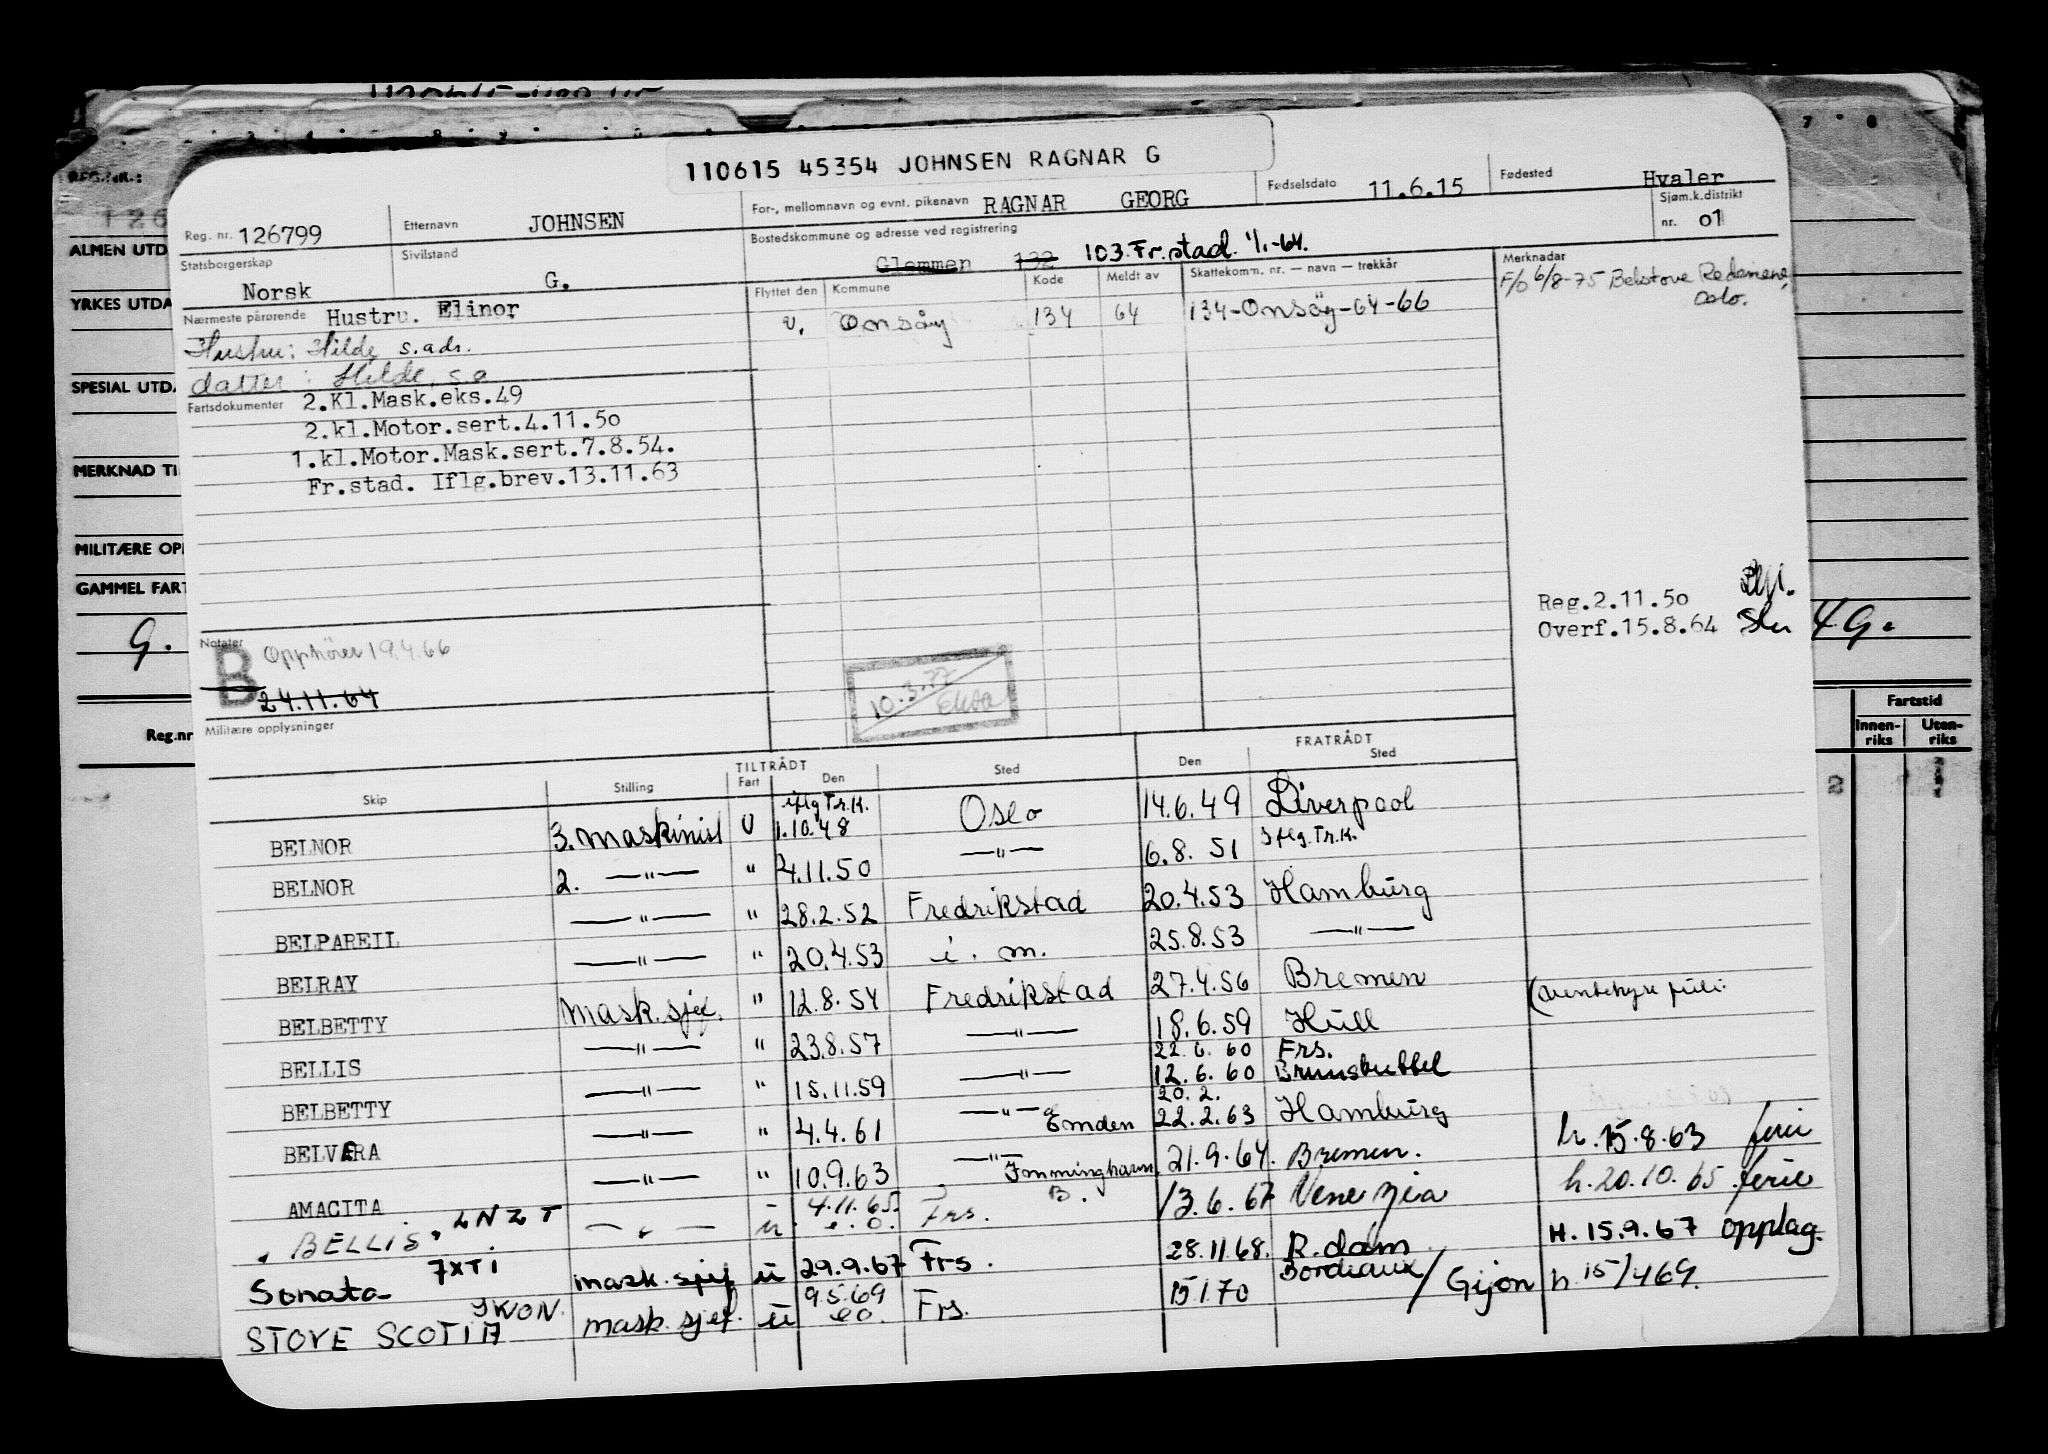 110615 45354 JOHNSEN RAGNAR G
Reg. nr. 126799 Etternavn JOHNSEN For-, mellomnavn og evnt. pikenavn RAGNAR GEORG Fødselsdato 11.6.15 Fødested Hvaler
Statsborgerskap Norsk Sivilstand G. Bostedskommune og adresse ved registrering Glemmen 132 103 Fr.stad. 1/1-64. Sjøm.k.distrikt nr. 01
Nærmeste pårørende Hustru. Elinor
Hustru: Hilde s.adr.
datter: Hilde, s.a
Flyttet den Kommune Kode Meldt av Skattekomm. nr. — navn — trekkår
v. Onsøy 134 64 134-Onsøy-64-66
Merknader
F/o 6/8-75 Belstove Rederiene, Oslo.
Fartsdokumenter 2.Kl.Mask.eks.49
2.kl.Motor.sert.4.11.50
1.kl.Motor.Mask.sert.7.8.54.
Fr.stad. Iflg.brev.13.11.63
Reg.2.11.50
Overf.15.8.64
Notater
B Opphører 19.4.66
24.11.64
10.3.77
Militære opplysninger
TILTRÅDT FRATRÅDT
Skip Stilling Fart Den Sted Den Sted
BELNOR 3. maskinist U iflg Tr.K. 1.10.48 Oslo 14.6.49 Liverpool
BELNOR 2. —"— " 4.11.50 —"— 6.8.51 Iflg.Tr.K.
BELPAREIL —"— " 28.2.52 Fredrikstad 20.4.53 Hamburg
BELRAY —"— " 20.4.53 i. m. 25.8.53 —"—
BELBETTY Mask.sjef. " 12.8.54 Fredrikstad 27.4.56 Bremen
BELLIS —"— " 23.8.57 —"— 18.6.59 Hull
BELBETTY —"— " 15.11.59 —"— 22.6.60 Frs. 12.6.60 Brunsbuttel
BELVERA —"— " 4.4.61 —"— Emden 20.2. 22.2.63 Hamburg
AMACITA —"— " 10.9.63 —"— Immingham 21.9.64. Bremen. h. 15.8.63 ferie
"BELLIS" LNZT —"— u 4.11.65 e.o. Frs. B. 13.6.67 Venezia h.20.10.65 ferie
Sonata 7XTI mask.sjef u 29.9.67 Frs. 28.11.68. R.dam H. 15.9.67 opplag.
STOVE SCOTIA JWON. mask.sjef. u 9.5.69 eo. Frs. 15.1.70 Bordeaux / Gijon h 15/4 69.
REG.NR.:
126
ALMEN UTD
YRKES UTDA
SPESIAL UTDA
MERKNAD TI
MILITÆRE OP
GAMMEL FART
G.
4G.
Reg.nr
Fartstid
Innen-riks Uten-riks